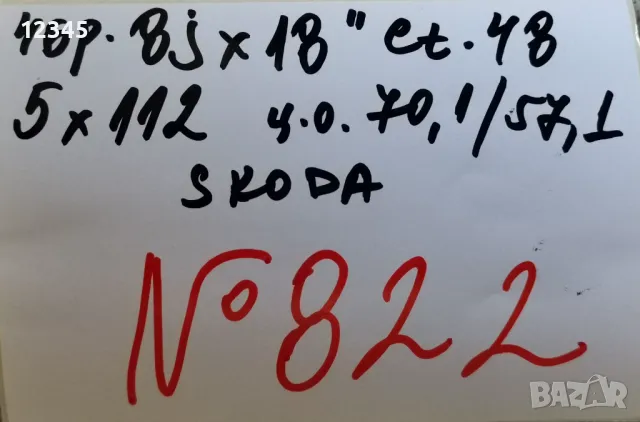 12345
гор. 8j x 18" et. 48
5 x 112 ц.о. 70,1/57,1
SKODA
№ 822
BAZAR